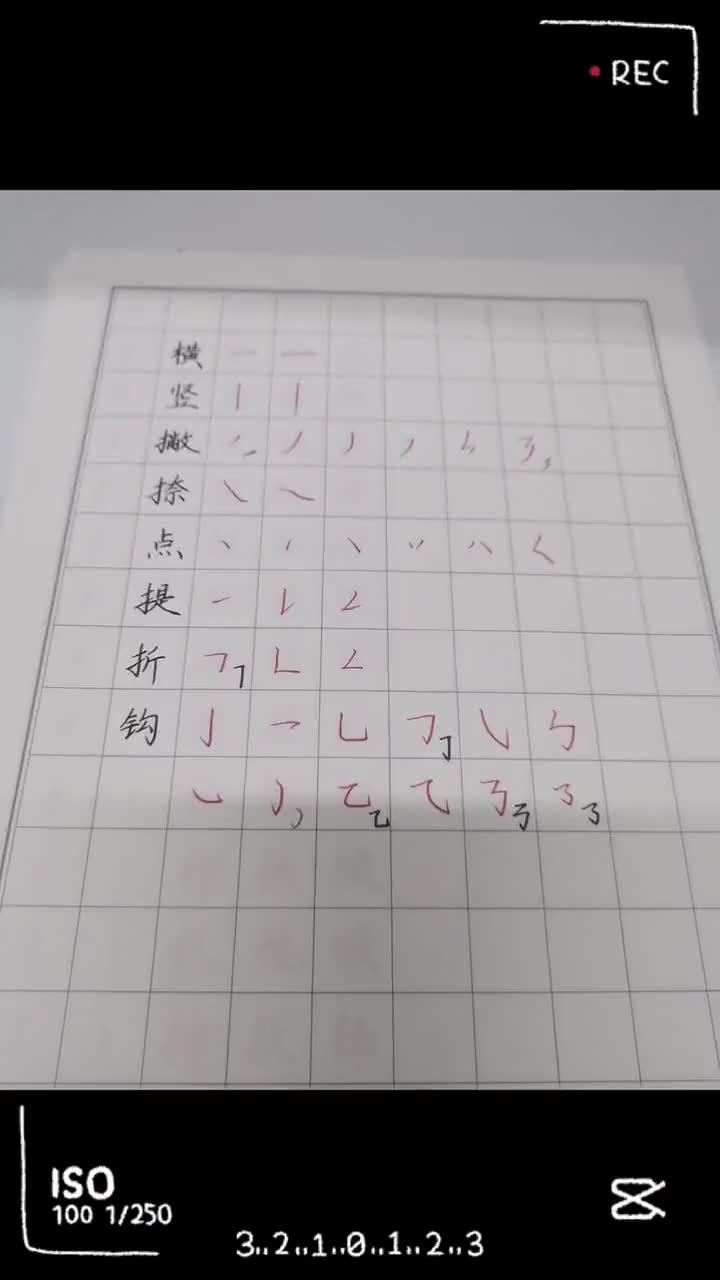 REC
横 一 一
竖 丨 丨
撇 丿 丿 丿 丿
捺 ㇏ ㇏
点 丶 丶 丶
提 ㇀ 𠄌 ㇜
折 ㇕ ㇕ ㇗ ㇜
钩 亅 ㇖ ㇄ ㇆ ㇆ ㇂ ㄣ
㇃ ㇁ 乙 乙 ㇈ ㇡ ㇡ ㇌ ㇌
ISO
100 1/250
3..2..1..0..1..2..3